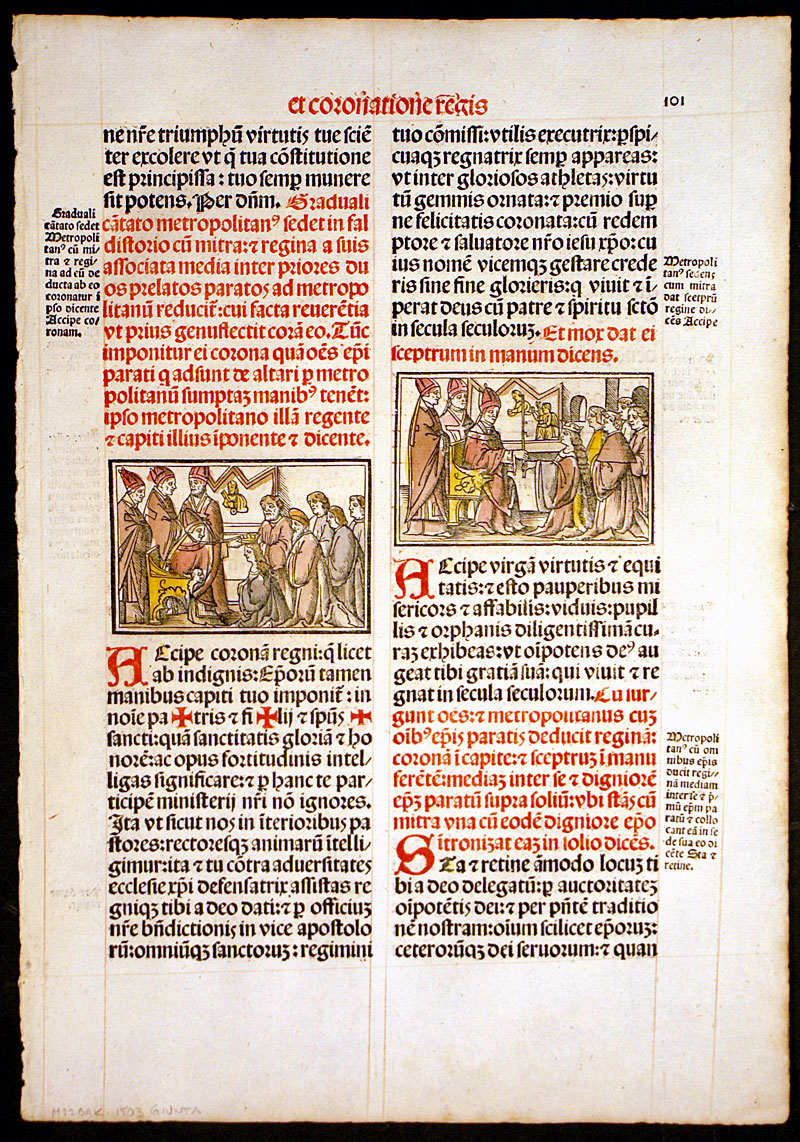 et coronatione regis
101
ne nr̄e triumphū virtutis tue sciē
ter excolere vt q̄ tua cōstitutione
est principissa : tuo semp̱ munere
sit potens. Per dn̄m. Graduali
cātato metropolitanꝰ sedet in fal
distorio cū mitra: ⁊ regina a suis
associata media inter priores du
os prelatos paratos ad metropo
litanū reducit̄: cui facta reuerētia
vt prius genuflectit corā eo. Tūc
imponitur ei corona quā oēs ep̄i
parati q adsunt de altari ꝑ metro
politanū sumptaʒ manibꝰ tenēt:
ipso metropolitano illā regente
⁊ capiti illius īponente ⁊ dicente.
Graduali
cātato sedet
Metropoli
tanꝰ cū mi/
tra ⁊ regi/
na ad eū de
ducta ab eo
coronatur ī
pso dicente
Accipe co/
ronam.
ACcipe coronā regni: q̄ licet
ab indignis: Ep̄orū tamen
manibus capiti tuo imponit̄ : in
noīe pa ✠ tris ⁊ fi ✠ lij ⁊ sp̄uſ ✠
sancti: quā sanctitatis gloriā ⁊ ho
norē: ac opus fortitudinis intel/
ligas significare: ⁊ ꝑ hanc te par/
ticipē ministerij nr̄i nō ignores.
Ita vt sicut nos in īterioribus pa
stores: rectoresqʒ animarū ītelli/
gimur: ita ⁊ tu cōtra aduersitates
ecclesie xp̄i defensatrix assistas re
gniqʒ tibi a deo dati: ⁊ ꝑ officiuʒ
nr̄e bn̄dictionis in vice apostolo
rū: omniūqʒ sanctoruʒ : regimini
tuo cōmissi: vtilis executrix: ꝑspi/
cuaqʒ regnatrix semꝑ appareas:
vt inter gloriosos athletas: virtu
tū gemmis ornata: ⁊ premio sup̱
ne felicitatis coronata: cū redem
ptore ⁊ saluatore nr̄o iesu xp̄o: cu
ius nomē vicemqʒ gestare crede
ris sine fine glorieris: q viuit ⁊ ī/
perat deus cū patre ⁊ spiritu sctō
in secula seculoruʒ. Et mox dat ei
sceptrum in manum dicens.
Metropoli
tanꝰ sedens
cum mitra
dat sceptrū
regine di/
cēs Accipe
ACcipe virgā virtutis ⁊ equi
tatis: ⁊ esto pauperibus mi
sericors ⁊ affabilis: viduis: pupil
lis ⁊ orphanis diligentissimā cu/
raʒ exhibeas: vt oīpotens deꝰ au
geat tibi gratiā suā: qui viuit ⁊ re
gnat in secula seculorum. Tu sur/
gunt oēs: ⁊ metropolitanus cuʒ
oībꝰ ep̄is paratis deducit reginā:
coronā ī capite: ⁊ sceptruʒ ī manu
ferētē: mediaʒ inter se ⁊ digniorē
ep̄ʒ paratū supra soliū: vbi stās cū
mitra vna cū eodē digniore ep̄o
ītronizat eaʒ in solio dicēs.
Metropoli
tanꝰ cū om
nibus ep̄is
ducit regi/
nā mediam
inter se ⁊ p̄/
mū ep̄m pa
ratū ⁊ collo
cant eā in se
de sua eo di
cēte Sta ⁊
retine.
STa ⁊ retine āmodo locuʒ ti
bi a deo delegatū: ꝑ auctoritateʒ
oīpotētis dei: ⁊ per pn̄tē traditio
nē nostram: oīum scilicet ep̄oruʒ:
ceterorūqʒ dei seruorum: ⁊ quan
1503 GIUNTA